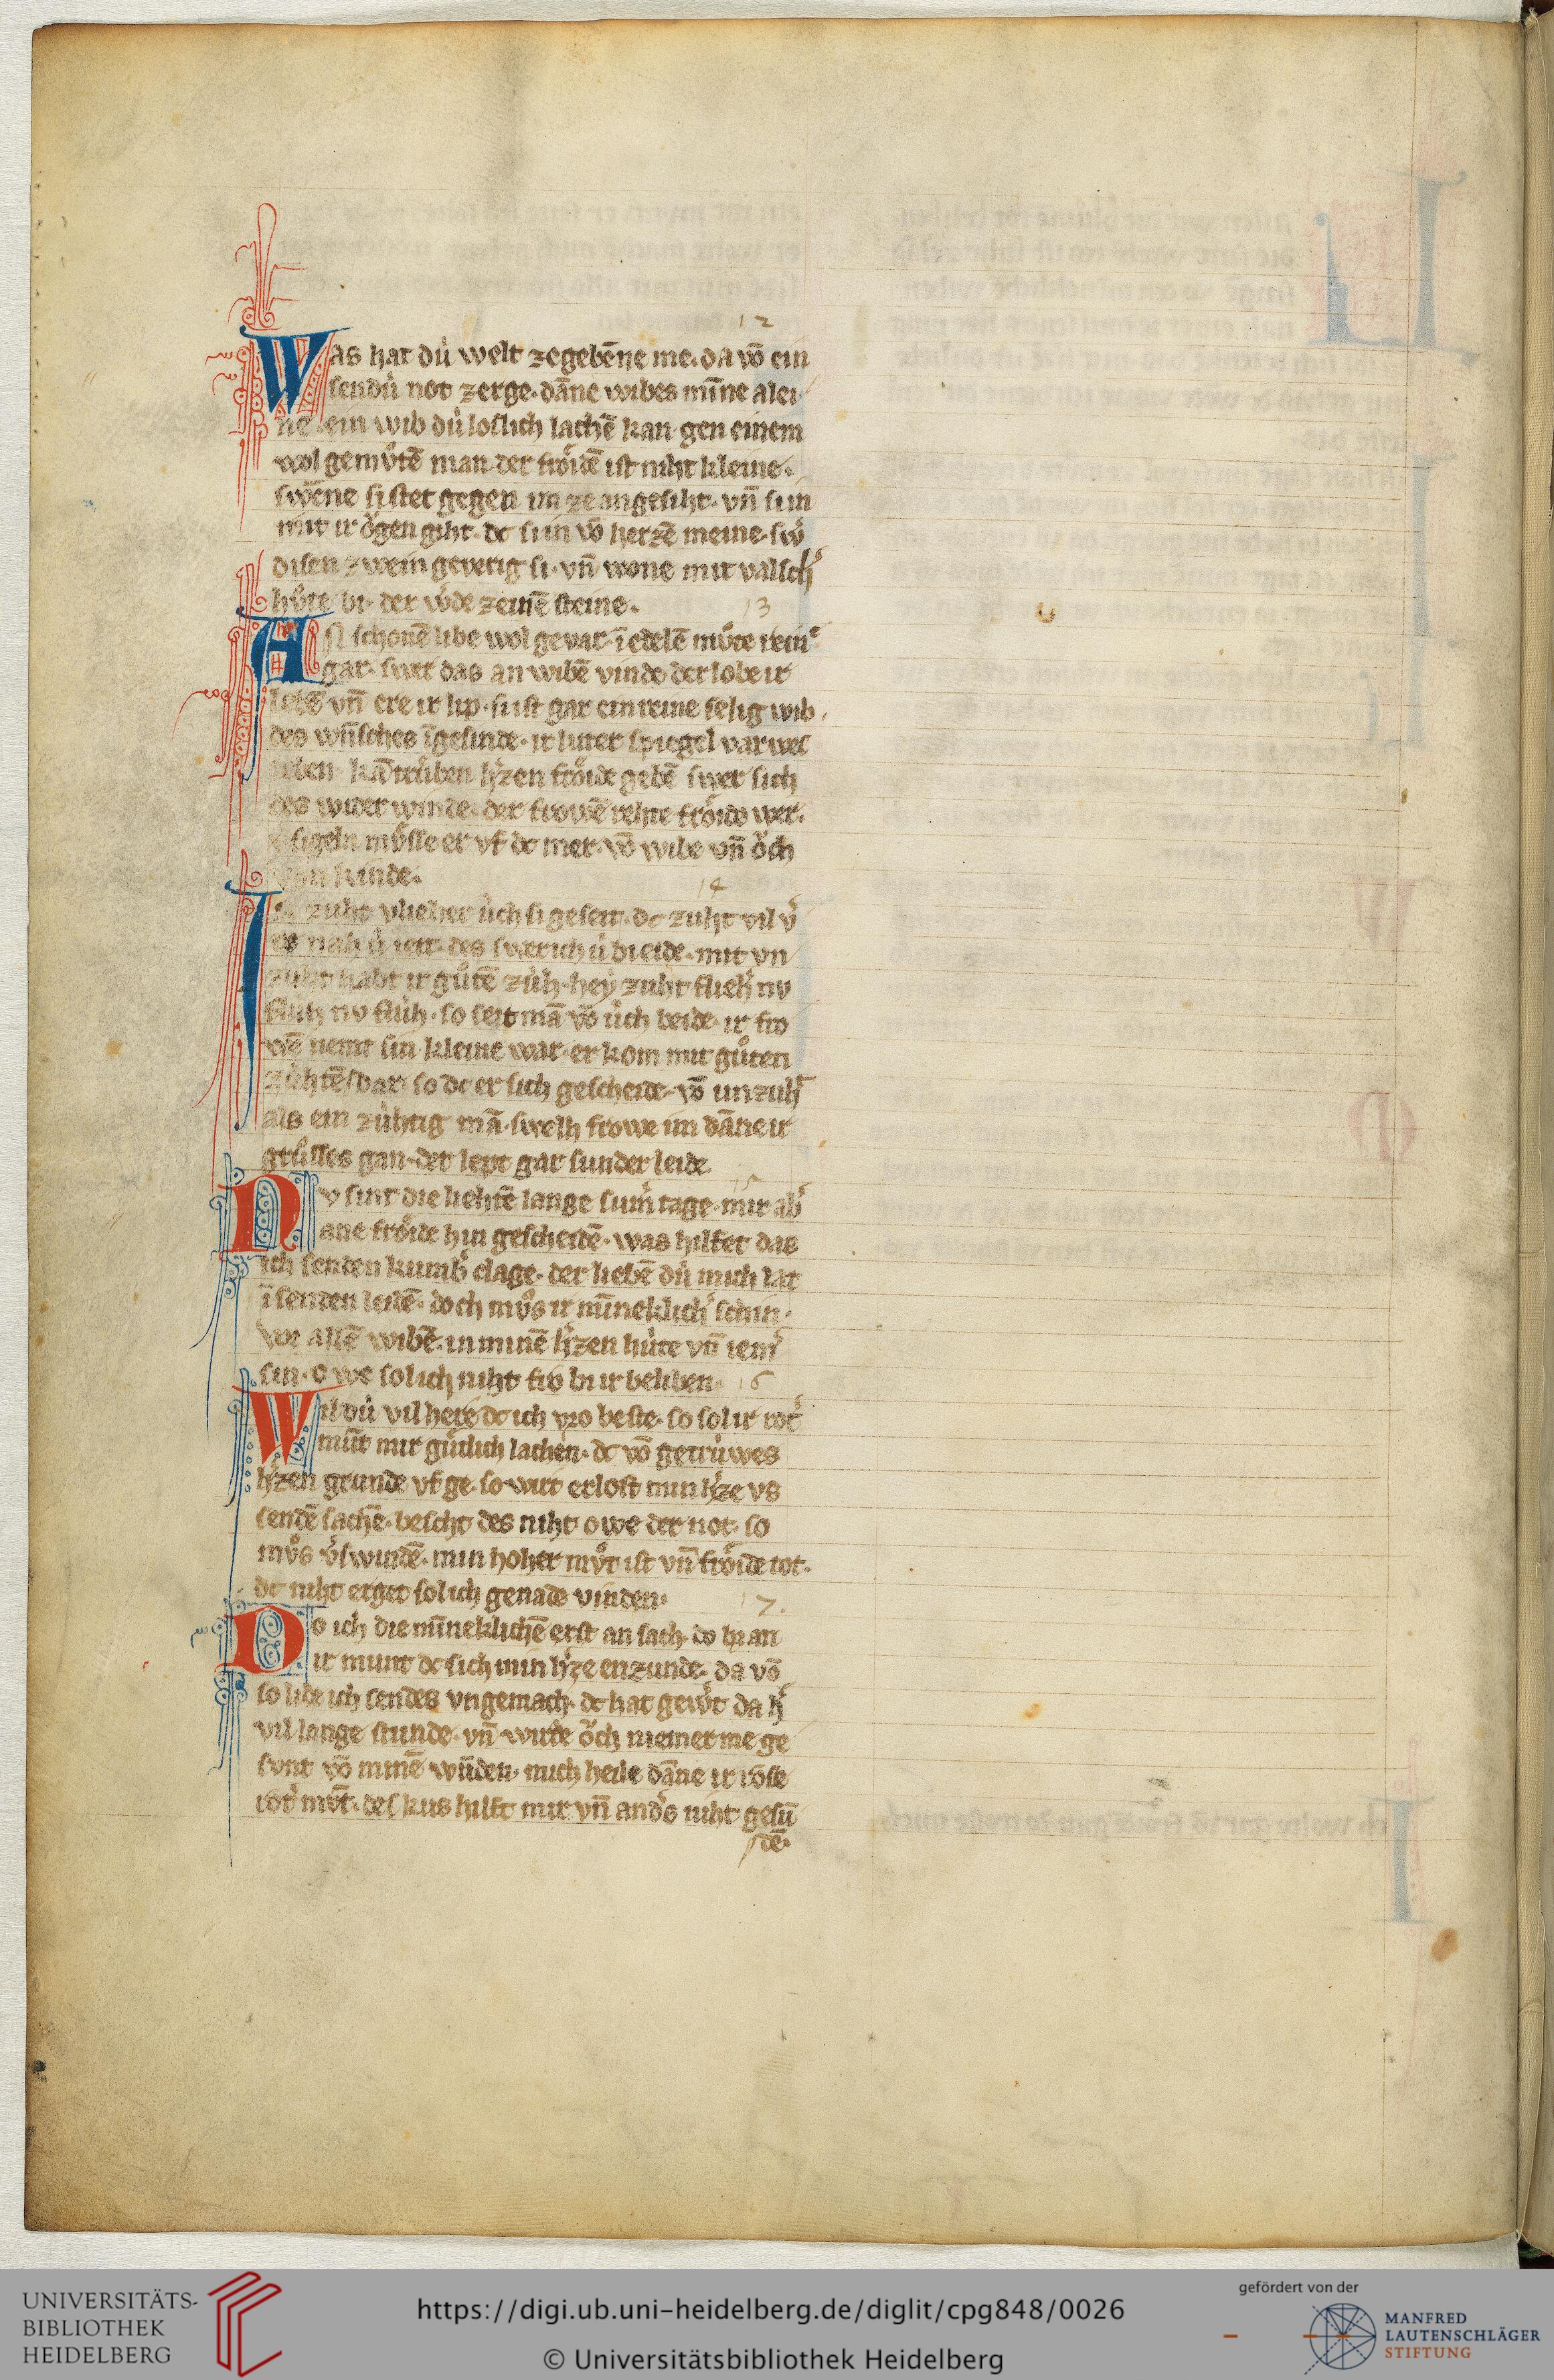 12
Was hat dú welt zegebēne me. da vō ein
sendú not zerge. dāne wibes mīne alei
ne. ein wib dú loslich lachē kan gen einem
wol gemvͦtē man der froͤidē ist niht kleine.
swēne si stet gegen im ze angesiht. vn̄ si in
mit ir oͮgen giht. dc si in vō herzē meine. sw
disen zwein geverig si. vn̄ wone mit valsch
hvͦte bi. der wde zeinē steine. 13
An schonē libe wol gevar. ī edelē mvͦte rein
gar. swer das an wibē vinde der lobe ir
lebē vn̄ ere ir lip. si ist gar ein reine selig wib.
des wn̄sches īgesinde. ir luter spiegel varwes
leben. kā truͤben hzen froͤide gebē swer sich
des wider winde. der frowē rehte froͤide wer.
sigeln mvͤsse er vf dc mer. vō wibe vn̄ oͮch
von kinde. 14
zuht vlieher úch si geseit. dc zuht vil v
es nah ú reit. des swer ich ú bi eide. mit vn
zuht habt ir guͦtē zúh. hey zuht flieh nv
flúh nv flúh. so seit mā vō úch beide. ir fro
wē nemt sin kleine war. er kom mit guͦten
zúhtē dar. so dc er sich gescheide. vō unzuh
als ein zúhtig mā. swelh frowe im dāne ir
gruͤsses gan. der lept gar sunder leide. 15
Nv sint die liehtē lange sum tage. mir ab
ane froͤide hin gescheidē. was hilfet das
ich senden kumb clage. der liebē dú mich lat
ī senden leidē. doch mvͦs ir mīneklich schin.
vor allē wibē. in minē hzen húte vn̄ iem
sin. owe sol ich niht fro bi ir beliben. 16
Wil dú vil here dc ich vro beste. so sol ir rot
mūt mir guͤtlich lachen. dc vō getrúwes
hzen grunde vf ge. so wirt erlost min hze vs
sendē sachē. bescht des niht owe der not. so
mvͦs vswindē. min hoher mvͦt ist vn̄ froͤide tot.
dc niht erget sol ich genade vinden. 17.
Do ich die mīneklichē erst an sach. do bran
ir munt dc sich min hze enzunde. da vō
so lide ich sendes vngemach. dc hat gewt da h
vil lange stunde. vn̄ wirde oͮch niemer me ge
svnt vō minē wn̄den. mich heile dāne ir rose
rot mūt. des kus hilft mir vn̄ ands niht gesū
dē.
UNIVERSITÄTS-
BIBLIOTHEK
HEIDELBERG
https://digi.ub.uni-heidelberg.de/diglit/cpg848/0026
© Universitätsbibliothek Heidelberg
gefördert von der
MANFRED
LAUTENSCHLÄGER
STIFTUNG